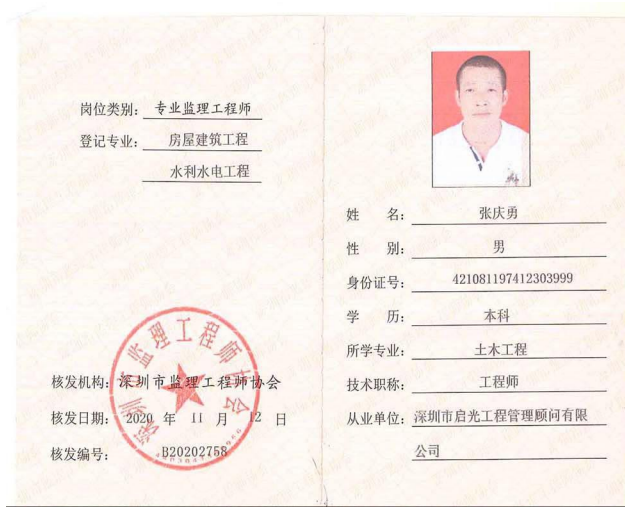 岗位类别： 专业监理工程师
登记专业： 房屋建筑工程
水利水电工程
深圳市监理工程师协会
核发机构：深圳市监理工程师协会
核发日期： 2020 年 11 月 12 日
核发编号： B20202758
姓 名： 张庆勇
性 别： 男
身份证号： 421081197412303999
学 历： 本科
所学专业： 土木工程
技术职称： 工程师
从业单位：深圳市启光工程管理顾问有限
公司